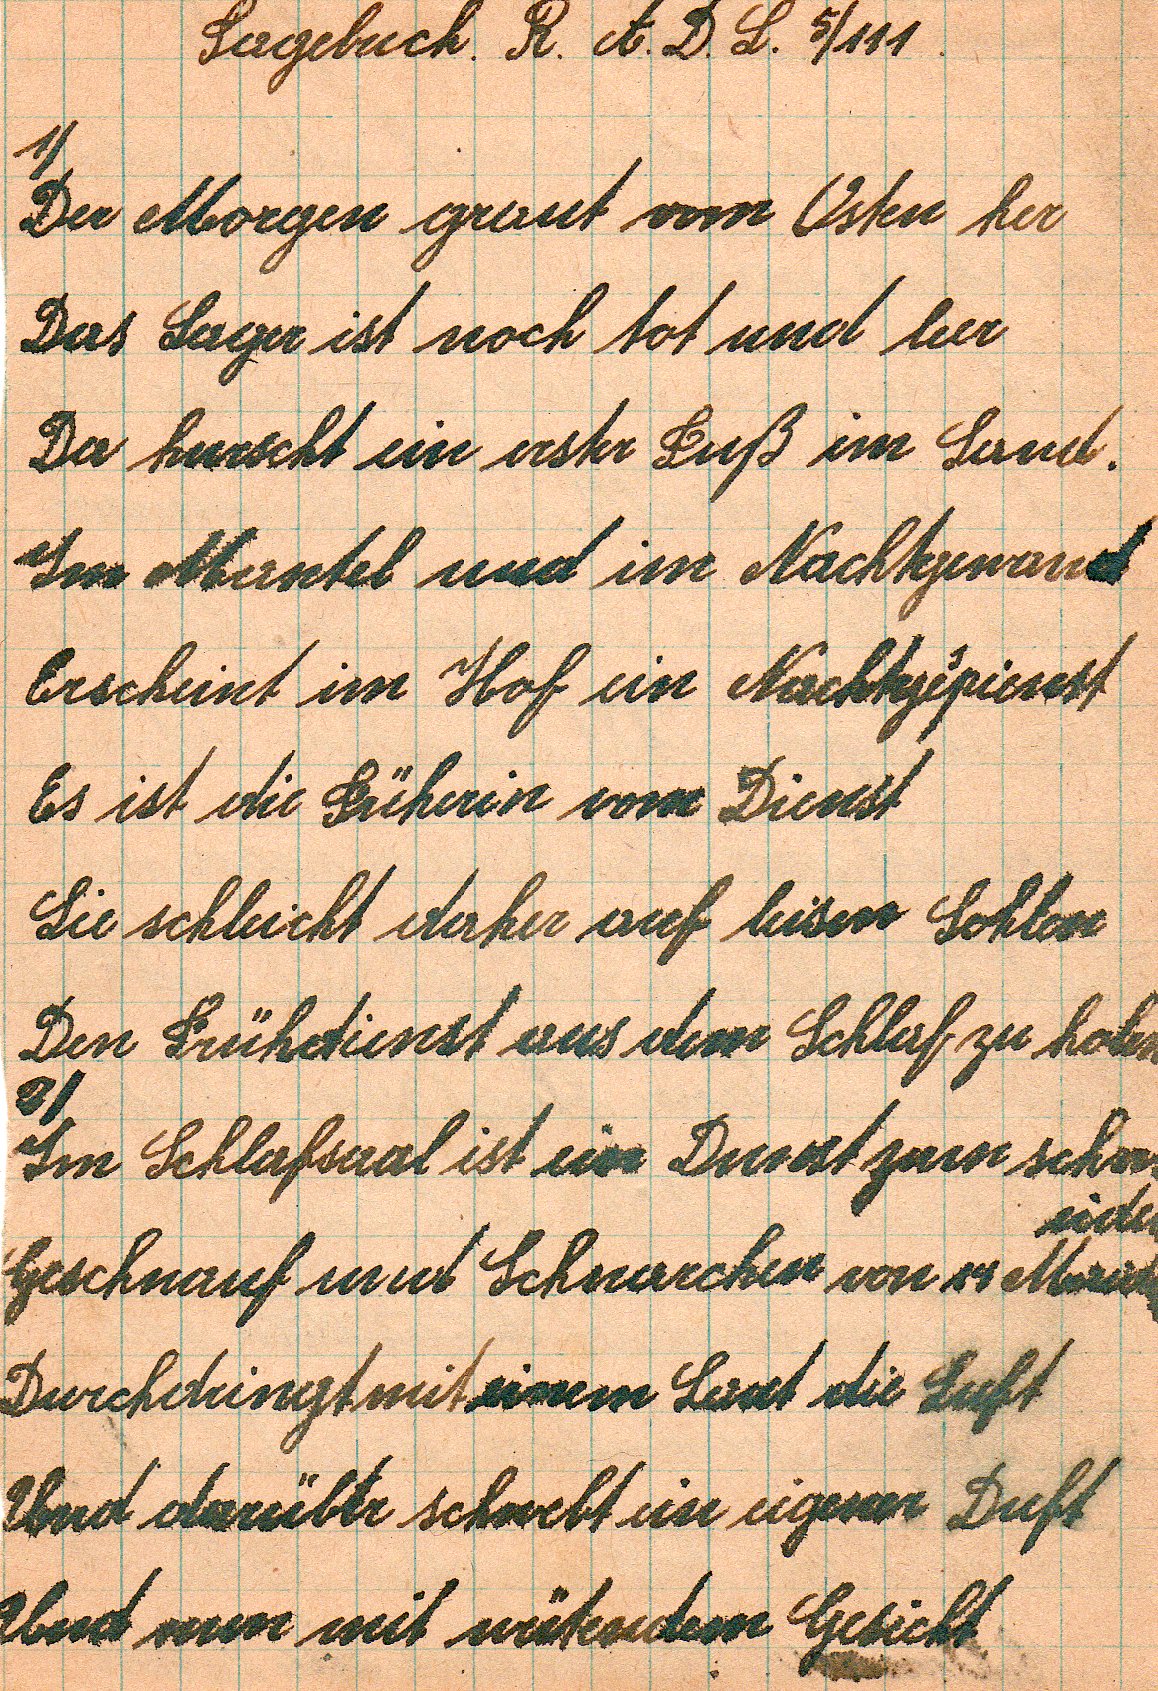 Lagebuch. R. A. D. L. 5/111.
1/
Der Morgen graut vom Osten her
Das Lager ist noch tot und leer
Da huscht ein erster Fuß im Sand.
Im Mantel und im Nachtgewand
Erscheint im Hof ein Nachtgespienst
Es ist die Füherin vom Dienst
Sie schleicht daher auf leisen Sohlen
Den Frühdienst aus dem Schlaf zu holen
2/
Im Schlafsaal ist ein Dunst zum schn
eiden
Geschnauf und Schnarchen von 14
Durchdringt mit einem Laut die Luft
Und darüber schwebt ein eigener Duft
Und nun mit wütendem Gesicht